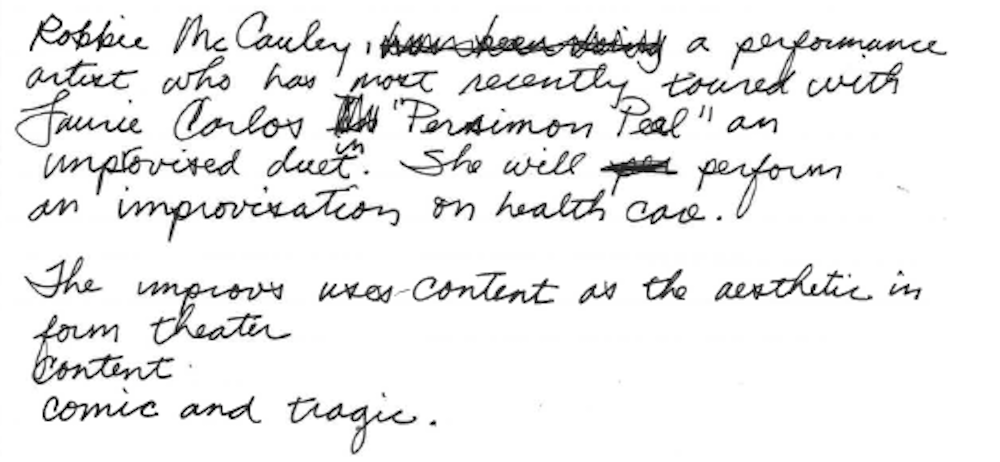 Robbie McCauley, a performance
artist who has most recently toured with
Laurie Carlos in "Persimmon Peel" an
improvised duet. She will perform
an improvisation on health care.
The improvs uses content as the aesthetic in
form theater
content
comic and tragic.